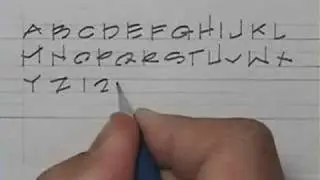 A B C D E F G H I J K L
M N O P Q R S T U V W X
Y Z 1 2